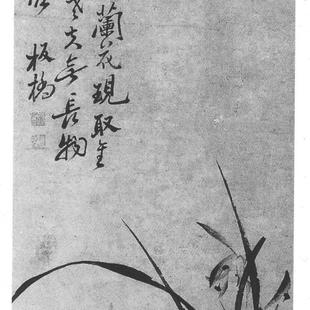 蘭花現取
老夫無長物
板橋